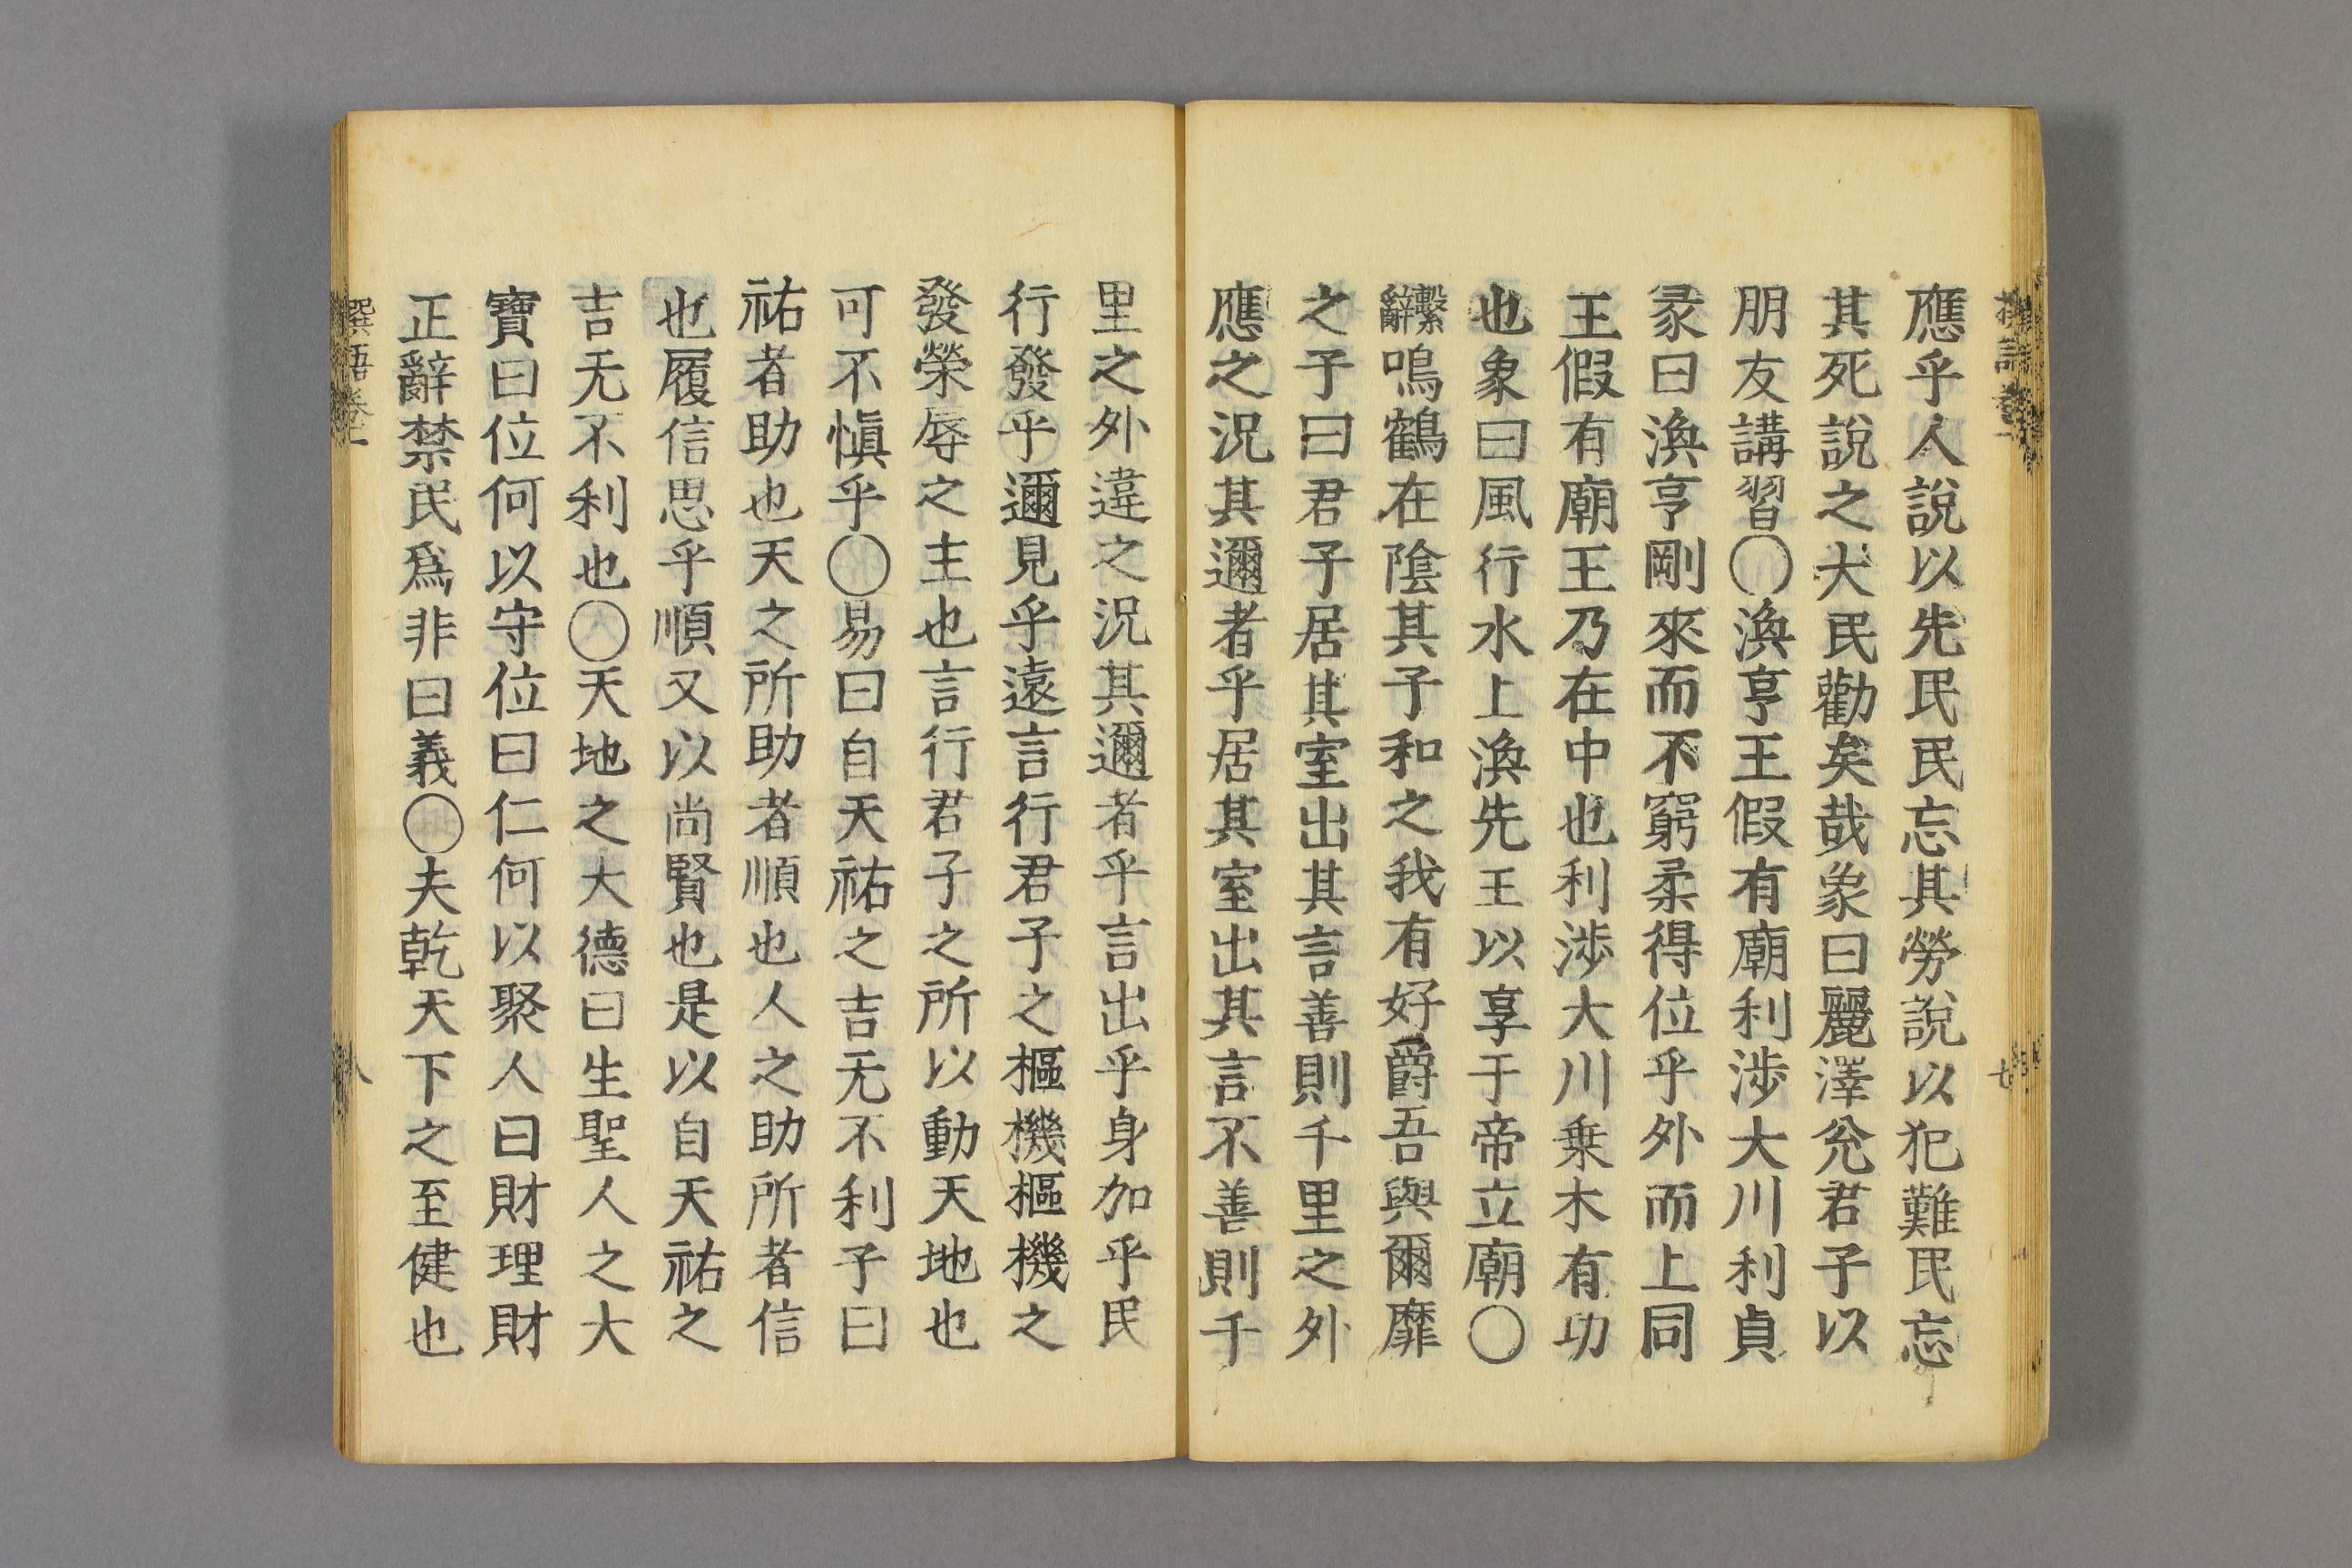 應乎人說以先民民忘其勞說以犯難民忘
其死說之大民勸矣哉象曰麗澤兌君子以
朋友講習〇渙亨王假有廟利渉大川利貞
彖曰渙亨剛來而不窮柔得位乎外而上同
王假有廟王乃在中也利渉大川乗木有功
也象曰風行水上渙先王以享于帝立廟〇
繫辭鳴鶴在陰其子和之我有好爵吾與爾靡
之子曰君子居其室出其言善則千里之外
應之況其邇者乎居其室出其言不善則千
里之外違之況其邇者乎言出乎身加乎民
行發乎邇見乎遠言行君子之樞機樞機之
發榮辱之主也言行君子之所以動天地也
可不愼乎〇易曰自天祐之吉无不利子曰
祐者助也天之所助者順也人之助所者信
也履信思乎順又以尚賢也是以自天祐之
吉无不利也〇天地之大德曰生聖人之大
寶曰位何以守位曰仁何以聚人曰財理財
正辭禁民爲非曰義〇夫乾天下之至健也
八